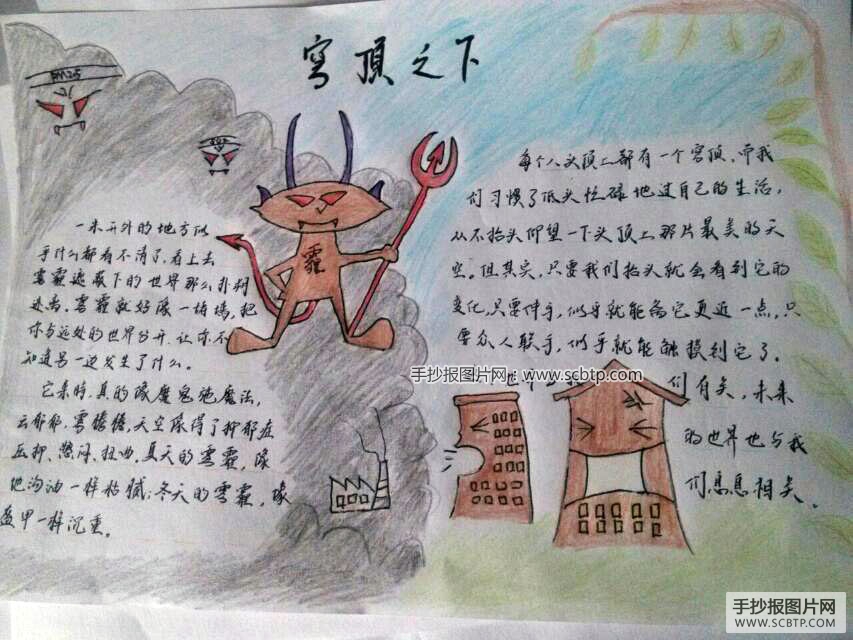 穹頂之下
PM2.5
霾
一米开外的地方似
乎什么都看不清了,看上去
雾霾遮蔽下的世界那么扑朔
迷离。雾霾就好像一堵墙,把
你与远处的世界分开,让你不
知道另一边发生了什么。
它来时,真的像魔鬼施魔法,
云郁郁,雾皑皑,天空像得了抑郁症
压抑、愁闷、扭曲,夏天的雾霾,像
地沟油一样粘腻;冬天的雾霾,像
盔甲一样沉重。
每个人头顶上都有一个穹顶,而我
们习惯了低头忙碌地过自己的生活,
从不抬头仰望一下头顶上那片最美的天
空。但其实,只要我们抬头就会看到它的
变化,只要伸手,似乎就能离它更近一点,只
要众人联手,似乎就能触摸到它了。
们有关,未来
的世界也与我
们息息相关。
手抄报图片网:www.scbtp.com
手抄报图片网
WWW.SCBTP.COM